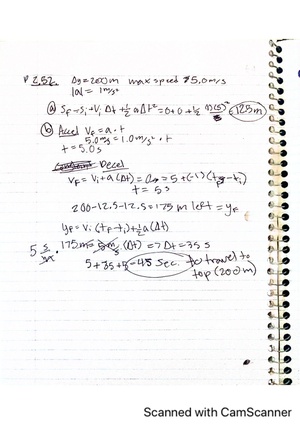 P 2.52. Δy=200m max speed 5.0m/s
|a|= 1m/s²
(a) Sf=Si+Vi Δt+½aΔt²=0+0+½ (1)(5)² =12.5m
(b) Accel Vf=a·t
5.0m/s=1.0m/s²·t
t=5.0s
Decel
Vf=Vi+a(Δt)= =5+(-1)(tf-ti)
t=5s
200-12.5-12.5=175m left=yf
yf=Vi(tf-ti)+½a(Δt)
175m= (Δt)=7 Δt=35s
5+35+5=45 sec. to travel to
top (200m)
Scanned with CamScanner